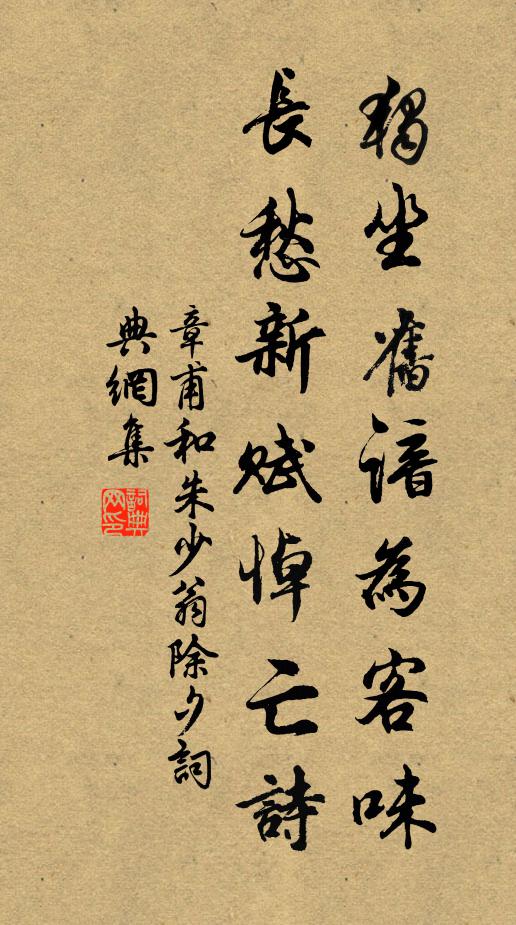 獨坐舊諳為客味
長愁新賦悼亡詩
章甫和朱少翁除夕詞
典網集
詞典網印